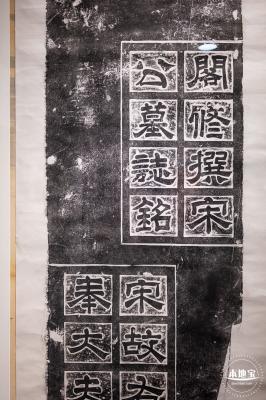 閣修撰宋
公墓誌銘
宋故
奉大夫
本地宝